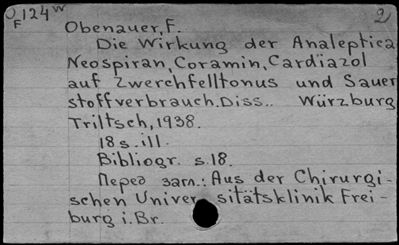 O 124 w
F
2
Obenauer, F.
Die Wirkung der Analeptica
Neospiran, Coramin, Cardiazol
auf Zwerchfelltonus und Sauer
stoffverbrauch. Diss.. Würzburg
Triltsch, 1938.
18 s. ill.
Bibliogr. s. 18.
Перед загл.: Aus der Chirurgi-
schen Univer sitätsklinik Frei-
burg i. Br.